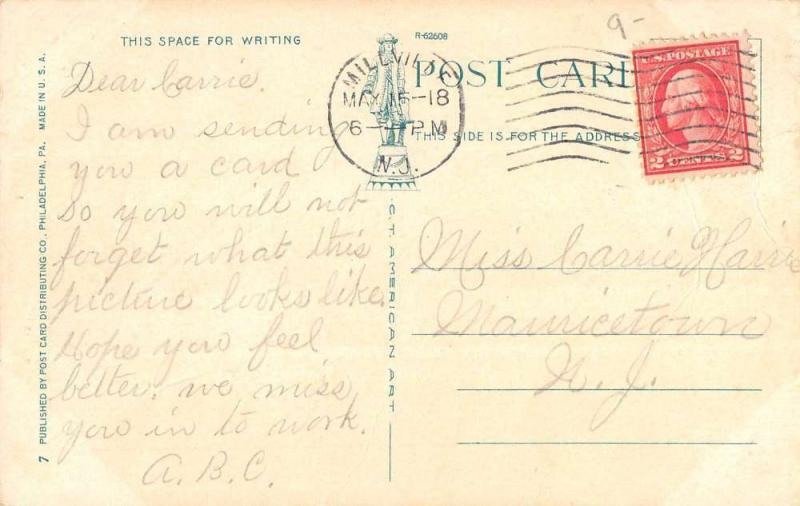 9-
THIS SPACE FOR WRITING
R-62608
POST CARD
THIS SIDE IS FOR THE ADDRESS
MILLVILLE
MAY 15-18
6- PM
N.J.
U.S. POSTAGE
2 CENTS 2
Dear Carrie.
I am sending
you a card
so you will not
forget what this
picture looks like
Hope you feel
better. we miss
you in to work.
A.B.C.
Miss Carrie
Mauricetown
N.J.
C.T. AMERICAN ART
7 PUBLISHED BY POST CARD DISTRIBUTING CO., PHILADELPHIA, PA. MADE IN U.S.A.